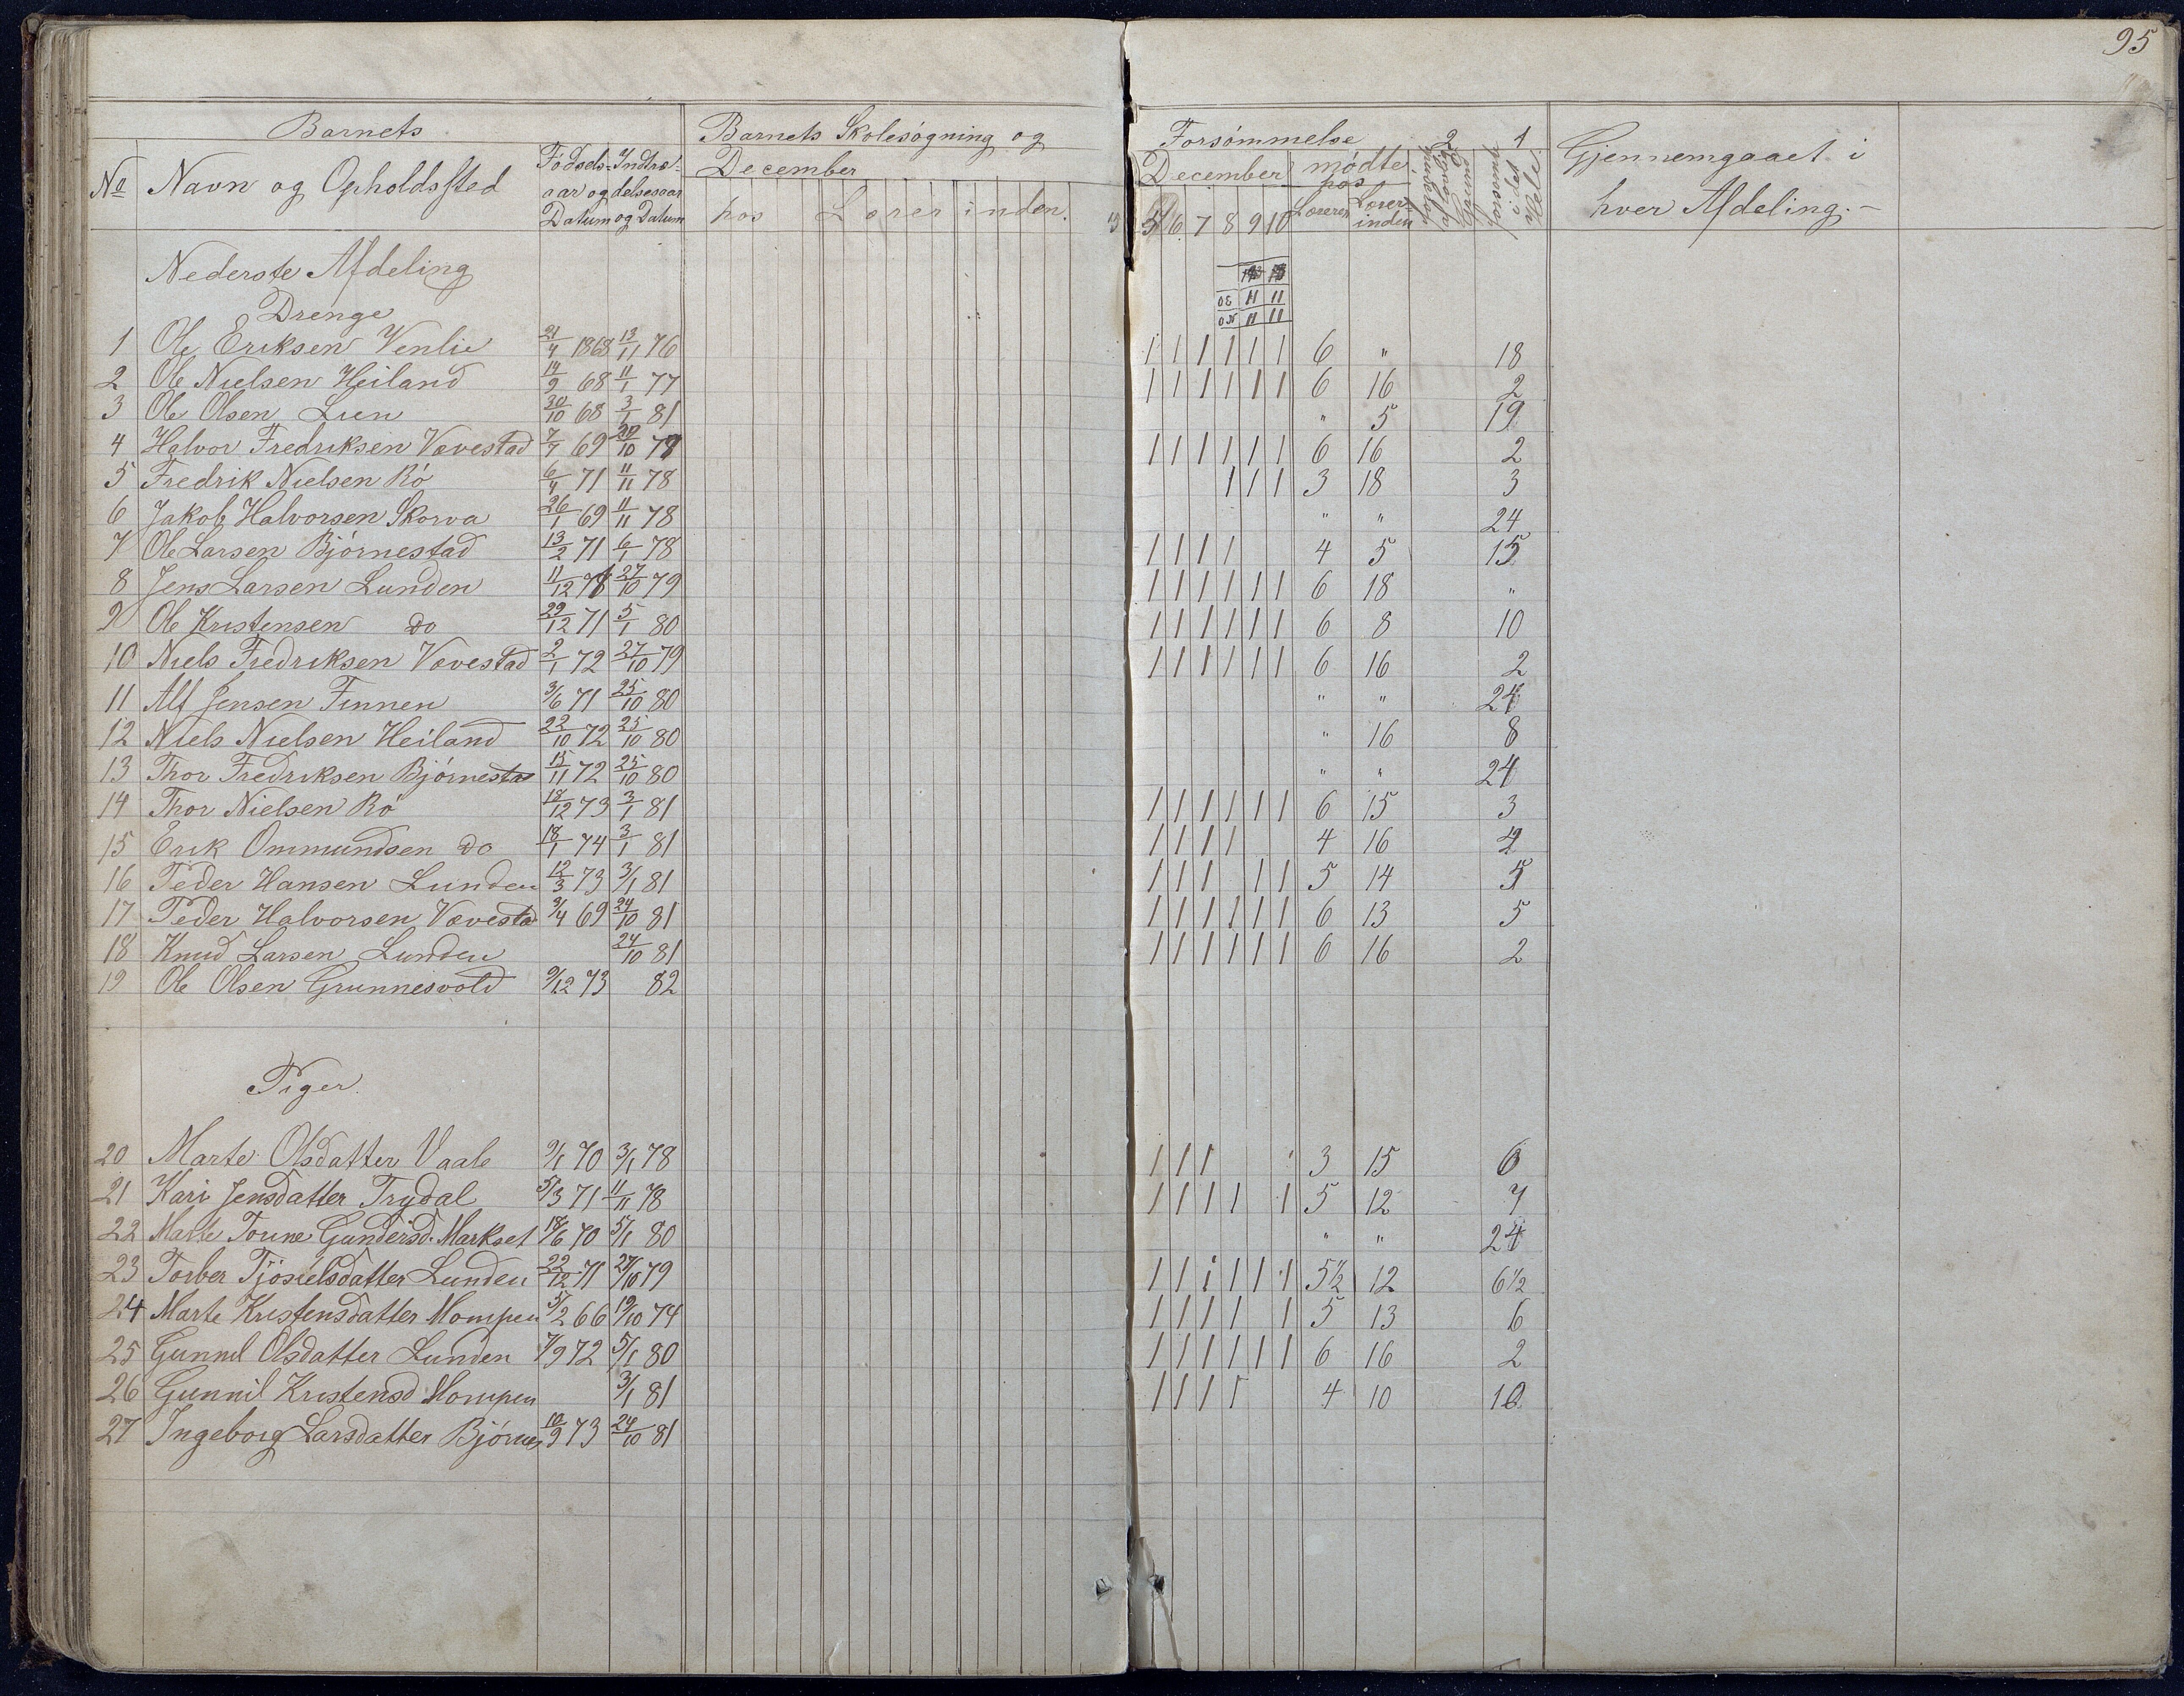 95
Barnets Barnets Skolesøgning og Forsømmelse 2 1
No Navn og Opholdssted Fødsels- Indtræ- December December mødte hos forsømt i det Hele Gjennemgaaet i
aar og delsesaar hver Afdeling.-
Datum og Datum hos Lærerinden. 5 6 7 8 9 10 Læreren Lærerinden
Nederste Afdeling
Drenge
1 Ole Eriksen Venlie 21/4 1868 13/11 76 1 1 1 1 1 1 6 " 18
2 Ole Nielsen Heiland 14/9 68 11/1 77 1 1 1 1 1 1 6 16 2
3 Ole Olsen Lien 30/10 68 3/1 81 " 5 19
4 Halvor Fredriksen Vævestad 7/7 69 10 78 1 1 1 1 1 1 6 16 2
5 Fredrik Nielsen Rø 6/4 71 11/11 78 1 1 1 3 18 3
6 Jakob Halvorsen Skorva 26/1 69 11/11 78 " " 24
7 Ole Larsen Bjørnestad 13/2 71 6/1 78 1 1 1 1 4 5 15
8 Jens Larsen Lunden 11/12 71 27/10 79 1 1 1 1 1 1 6 18 "
9 Ole Kristensen do 29/12 71 5/1 80 1 1 1 1 1 1 6 8 10
10 Niels Fredriksen Vævestad 2/1 72 27/10 79 1 1 1 1 1 1 6 16 2
11 Alf Jensen Finnen 3/6 71 25/10 80 " " 24
12 Niels Nielsen Heiland 22/10 72 25/10 80 " 16 8
13 Thor Fredriksen Bjørnesta 15/11 72 25/10 80 " " 24
14 Thor Nielsen Rø 18/12 73 3/1 81 1 1 1 1 1 1 6 15 3
15 Erik Ommundsen do 18/1 74 3/1 81 1 1 1 1 4 16
16 Peder Hansen Lunden 12/3 73 3/1 81 1 1 1 1 1 5 14 5
17 Peder Halvorsen Vævesta 3/4 69 24/10 81 1 1 1 1 1 1 6 13 5
18 Knud Larsen Lunden 24/10 81 1 1 1 1 1 1 6 16 2
19 Ole Olsen Grunnesvold 9/12 73 82
Piger
20 Marte Olsdatter Vaale 9/1 70 3/1 78 1 1 1 3 15 6
21 Kari Jensdatter Trydal 5/3 71 11/11 78 1 1 1 1 1 5 12 7
22 Marte Tonne Gundersd. Markset 18/6 70 5/1 80 " " 24
23 Torber Tjøstelsdatter Lunden 22/12 71 27/10 79 1 1 1 1 1 1 5½ 12 6½
24 Marte Kristensdatter Mompen 5/2 66 19/10 74 1 1 1 1 1 5 13 6
25 Gunnil Olsdatter Lunden 7/9 72 5/1 80 1 1 1 1 1 1 6 16 2
26 Gunnil Kristensd Mompen 3/1 81 1 1 1 1 4 10 10
27 Ingeborg Larsdatter Bjørnes 10/9 73 24/10 81